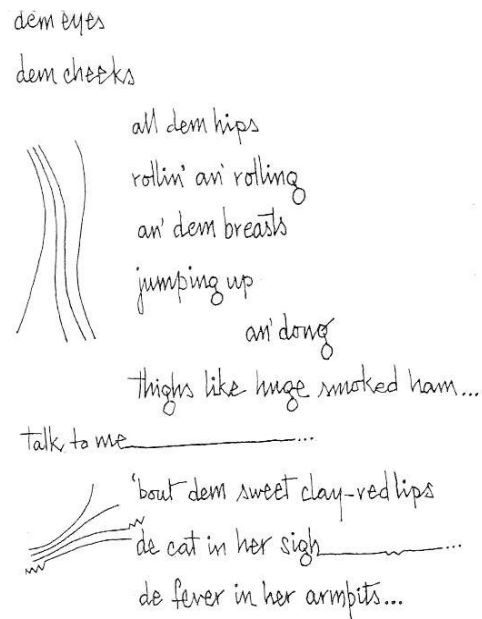 dem eyes
dem cheeks
all dem hips
rollin' an' rolling
an' dem breasts
jumping up
an' dong
thighs like huge smoked ham...
talk to me__________...
'bout dem sweet clay-red lips
de cat in her sigh__________...
de fever in her armpits...